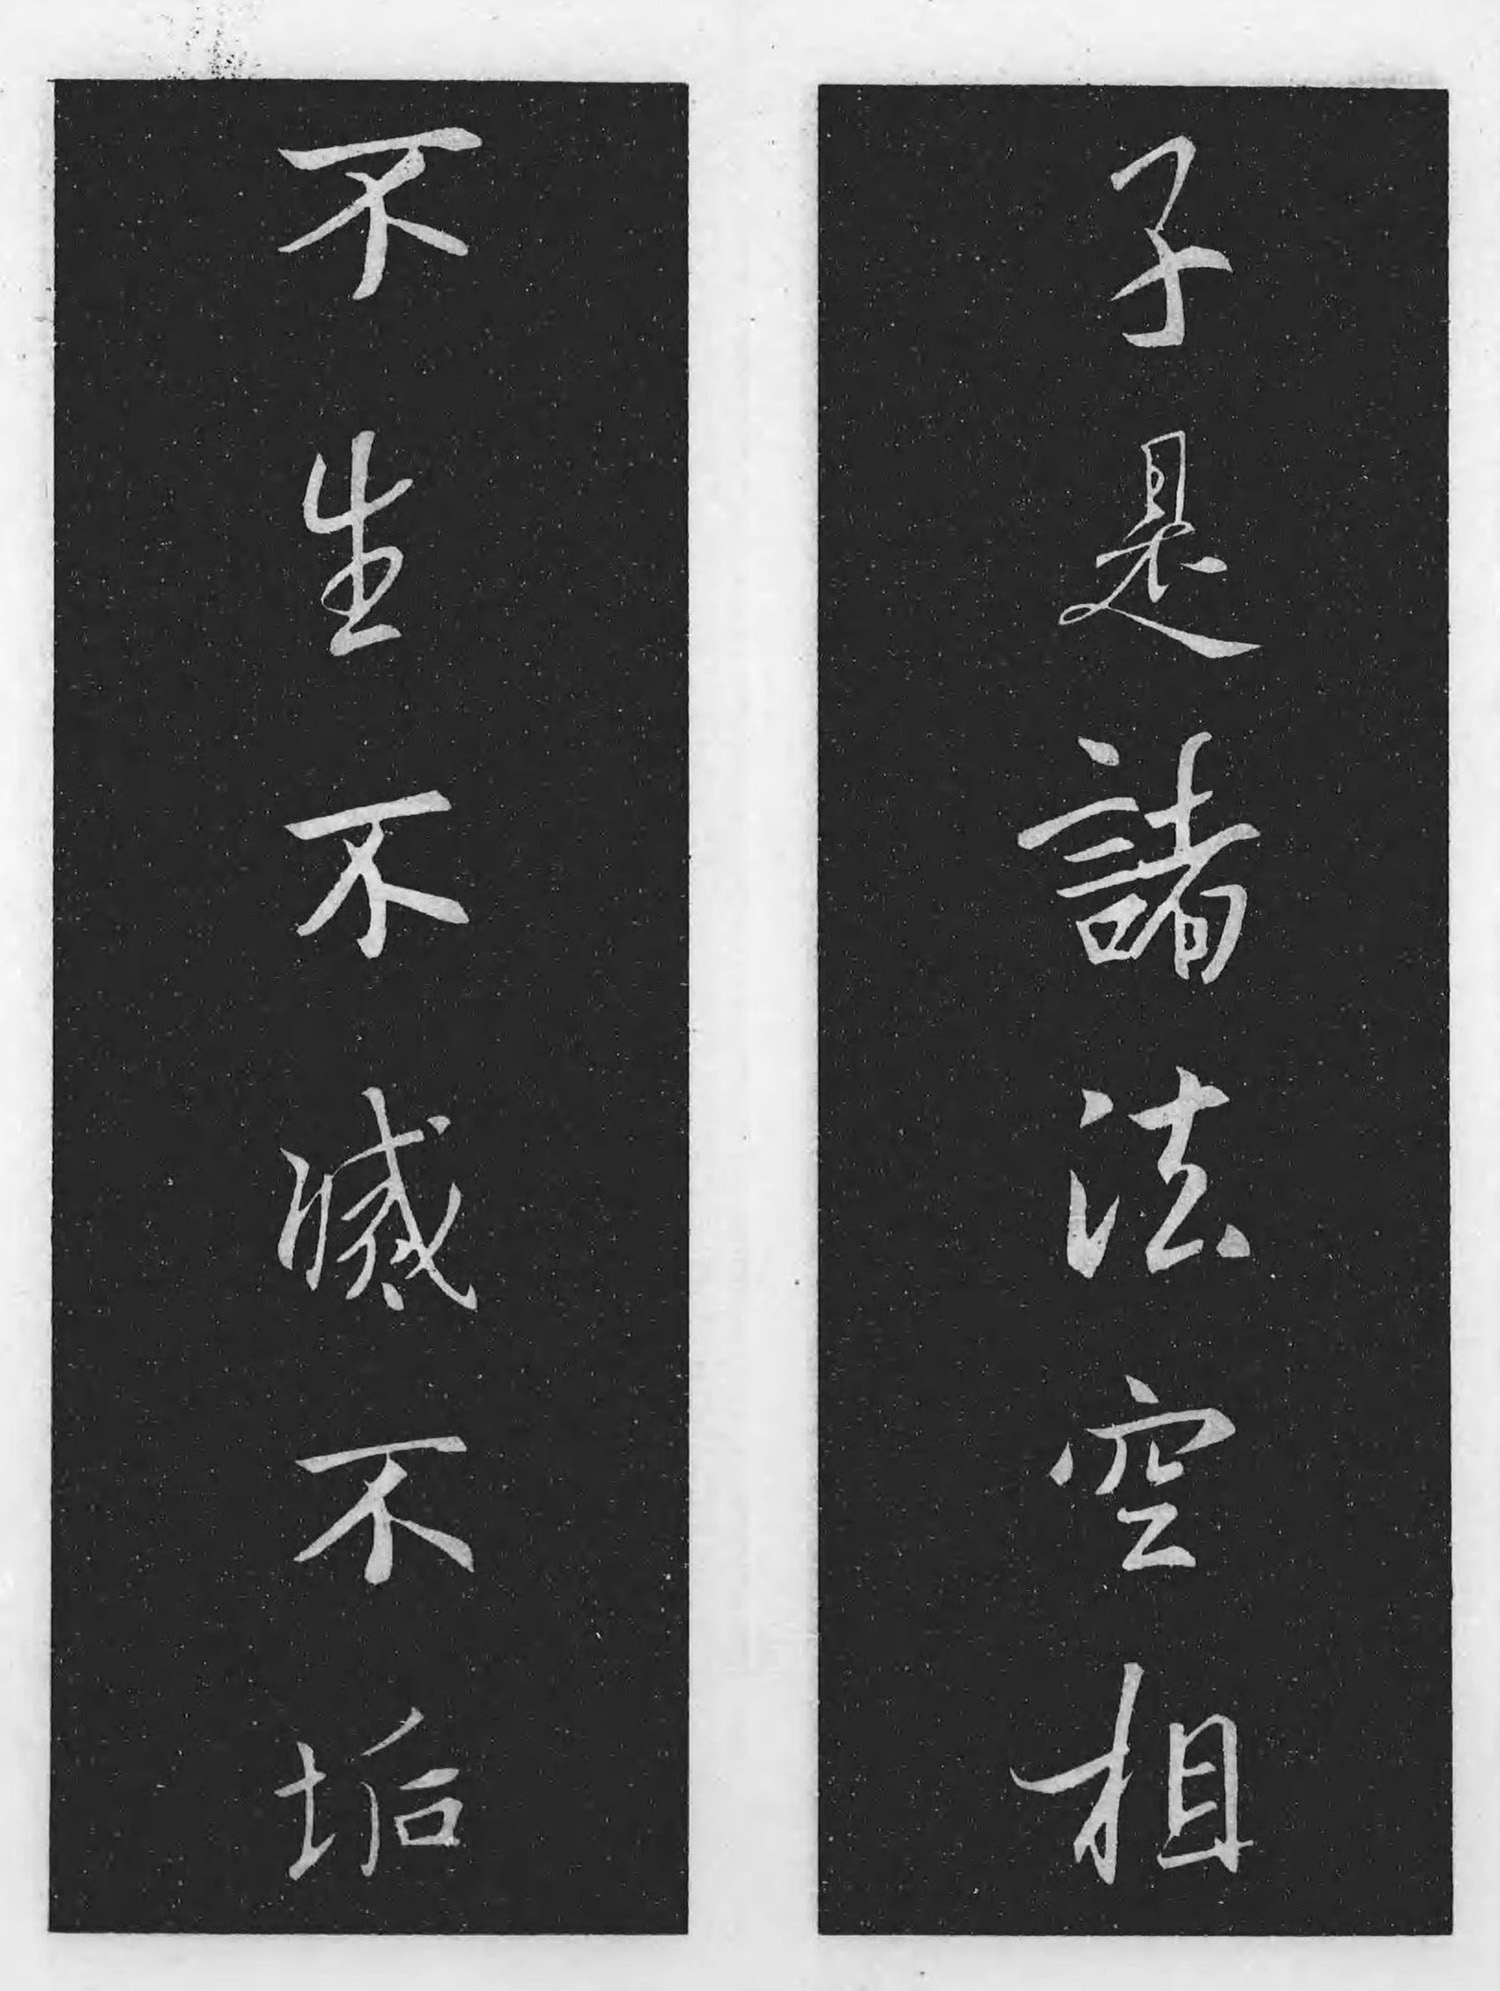 子是諸法空相
不生不滅不垢